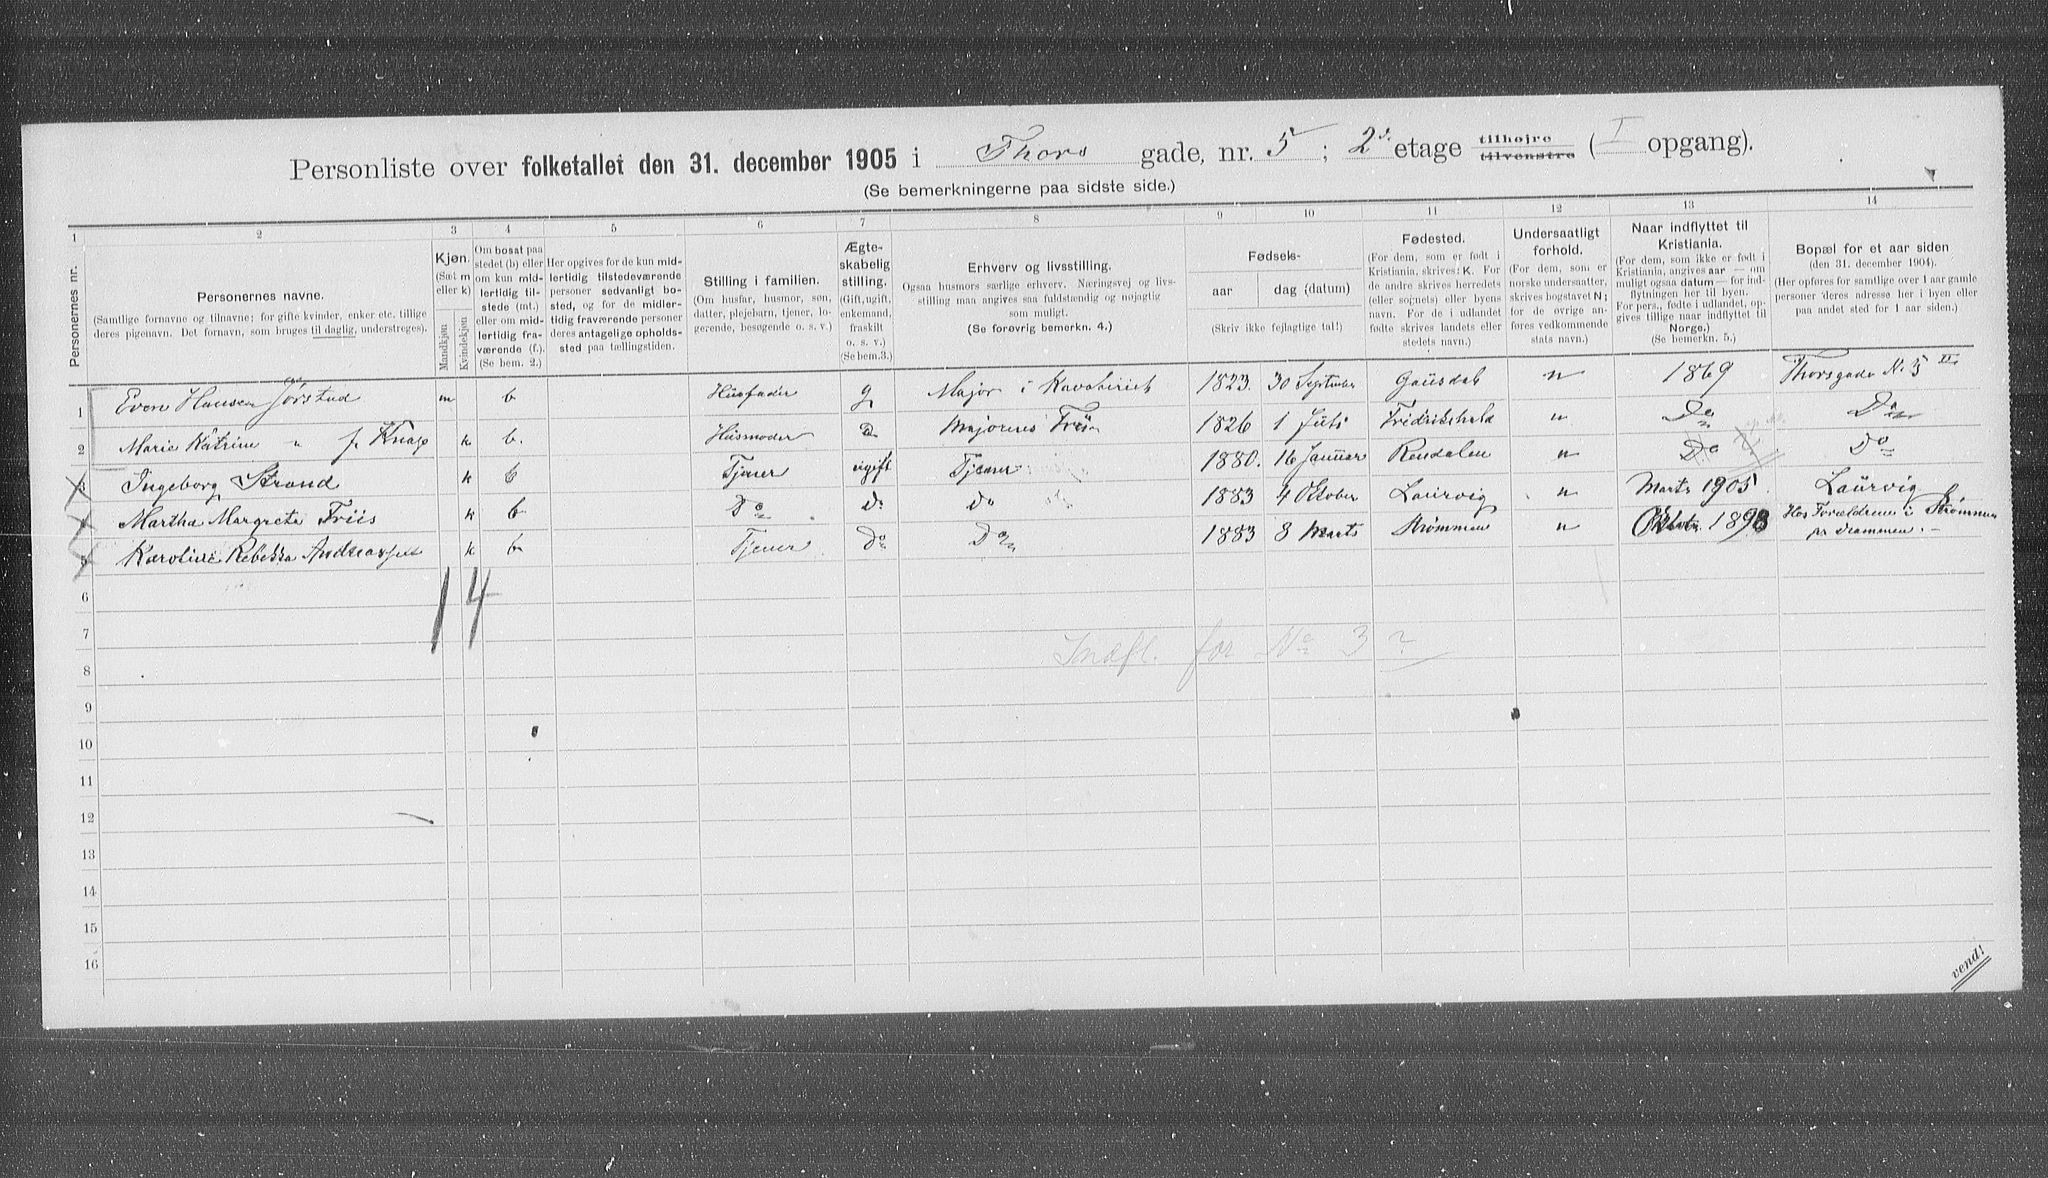 Personliste over folketallet den 31. december 1905 i Thors gade, nr. 5 ; 2d. etage tilhøjre tilvenstre ( I opgang).
(Se bemerkningerne paa sidste side.)
1 2 3 4 5 6 7 8 9 10 11 12 13 14
Personernes nr.
Personernes navne.
(Samtlige fornavne og tilnavne; for gifte kvinder, enker etc. tillige deres pigenavn. Det fornavn, som bruges til daglig, understreges).
Kjøn.
(Sæt m eller k)
Mandkjøn
Kvindekjøn
Om bosat paa stedet (b) eller om kun midlertidig tilstede (mt.) eller om midlertidig fraværende (f.). (Se bem. 2.)
Her opgives for de kun midlertidig tilstedeværende personer sedvanligt bosted, og for de midlertidig fraværende personer deres antagelige opholdssted paa tællingstiden.
Stilling i familien.
(Om husfar, husmor, søn, datter, plejebarn, tjener, logerende, besøgende o. s. v.)
Ægteskabelig stilling.
(Gift, ugift, enkemand, fraskilt o. s. v.) (Se bem. 3.)
Erhverv og livsstilling.
Ogsaa husmors særlige erhverv. Næringsvej og livsstilling maa angives saa fuldstændig og nøjagtig som muligt.
(Se forøvrig bemerkn. 4.)
Fødsels-
aar dag (datum)
(Skriv ikke fejlagtige tal!)
Fødested.
(For dem, som er født i Kristiania, skrives: K. For de andre skrives herredets (eller sognets) eller byens navn. For de i udlandet fødte skrives landets eller stedets navn.)
Undersaatligt forhold.
(For dem, som er norske undersaatter, skrives bogstavet N; for de øvrige anføres vedkommende stats navn.)
Naar indflyttet til Kristiania.
(For dem, som ikke er født i Kristiania, angives aar — om muligt ogsaa datum — for indflytningen her til byen. For pers., fødte i udlandet, opgives tillige naar indflyttet til Norge.) (Se bemerkn. 5.)
Bopæl for et aar siden
(den 31. december 1904).
(Her opføres for samtlige over 1 aar gamle personer deres adresse her i byen eller paa andet sted for 1 aar siden.)
1 Even Hansen Jørstad m b Husfader g Major i Kavaleriet 1823. 30 September Gausdal n 1869 Thorsgade N. 5 II
2 Marie Katrine " f. Knap k b. Husmoder Do Majorens Frü 1826 1 Juli Fredrikshald n Do Do
3 Ingeborg Strand k b Tjener ugift Tjener 1880. 16 Januar Rendalen n Do Do
4 Martha Margrete Friis k b Do Do Do 1883 4 Oktober Laurvig n Marts 1905 Laurvig
5 Karoline Rebekka Andreassen k b Tjener Do Do 1883 8 Marts Strømmen n Oktbr. 1898 Hos Forældrene i Strømmen pr Drammen.
6 1 4
7
Indfl. for No 3 ?
8
9
10
11
12
13
14
15
16
vend!